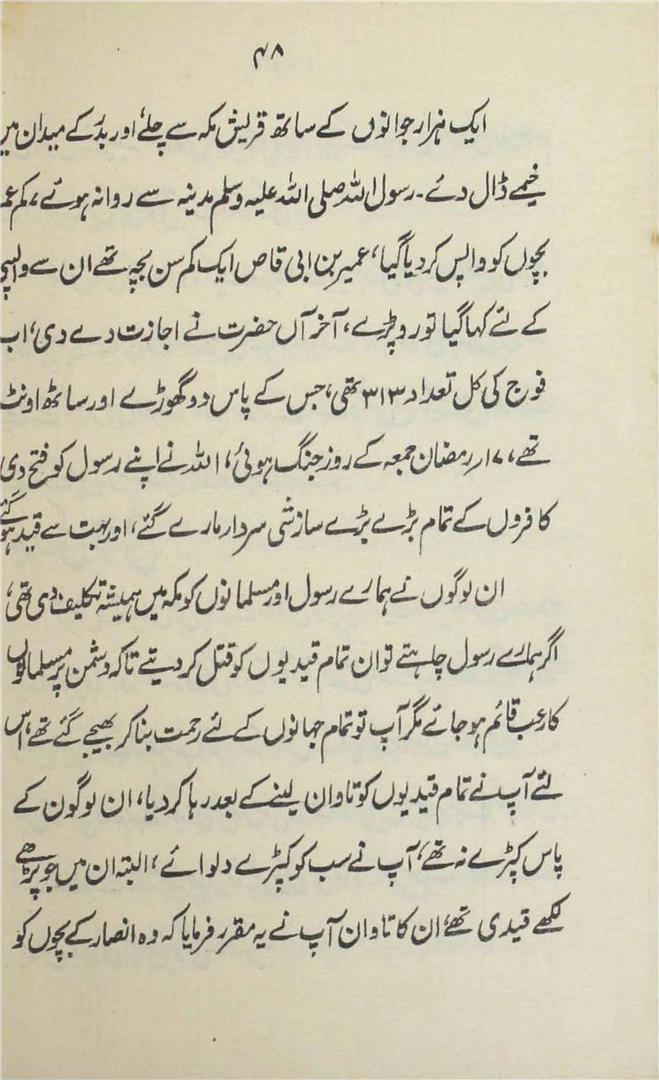 ۴۸
ایک ہزار جوانوں کے ساتھ قریش مکہ سے چلے اور بدر کے میدان میں
خیمے ڈال دئے۔ رسول اللہ صلی اللہ علیہ وسلم مدینہ سے روانہ ہوئے، کم عمر
بچوں کو واپس کر دیا گیا، عمیر بن ابی قاص ایک کم سن بچہ تھے ان سے واپسی
کے لئے کہا گیا تو رو پڑے، آخر آں حضرت نے اجازت دے دی، اب
فوج کی کل تعداد ۳۱۳ تھی، جس کے پاس دو گھوڑے اور ساٹھ اونٹ
تھے، ۱۷ر رمضان جمعہ کے روز جنگ ہوئی، اللہ نے اپنے رسول کو فتح دی
کافروں کے تمام بڑے بڑے سازشی سردار مارے گئے، اور بہت سے قید ہو گئے
ان لوگوں نے ہمارے رسول اور مسلمانوں کو مکہ میں ہمیشہ تکلیف دی تھی،
اگر ہمارے رسول چاہتے تو ان تمام قیدیوں کو قتل کر دیتے تاکہ دشمن پر مسلمانوں
کا رعب قائم ہو جائے مگر آپ تو تمام جہانوں کے لئے رحمت بنا کر بھیجے گئے تھے، اس
لئے آپ نے تمام قیدیوں کو تاوان لینے کے بعد رہا کر دیا، ان لوگون کے
پاس کپڑے نہ تھے، آپ نے سب کو کپڑے دلوائے، البتہ ان میں جو پڑھے
لکھے قیدی تھے، ان کا تاوان آپ نے یہ مقرر فرمایا کہ وہ انصار کے بچوں کو